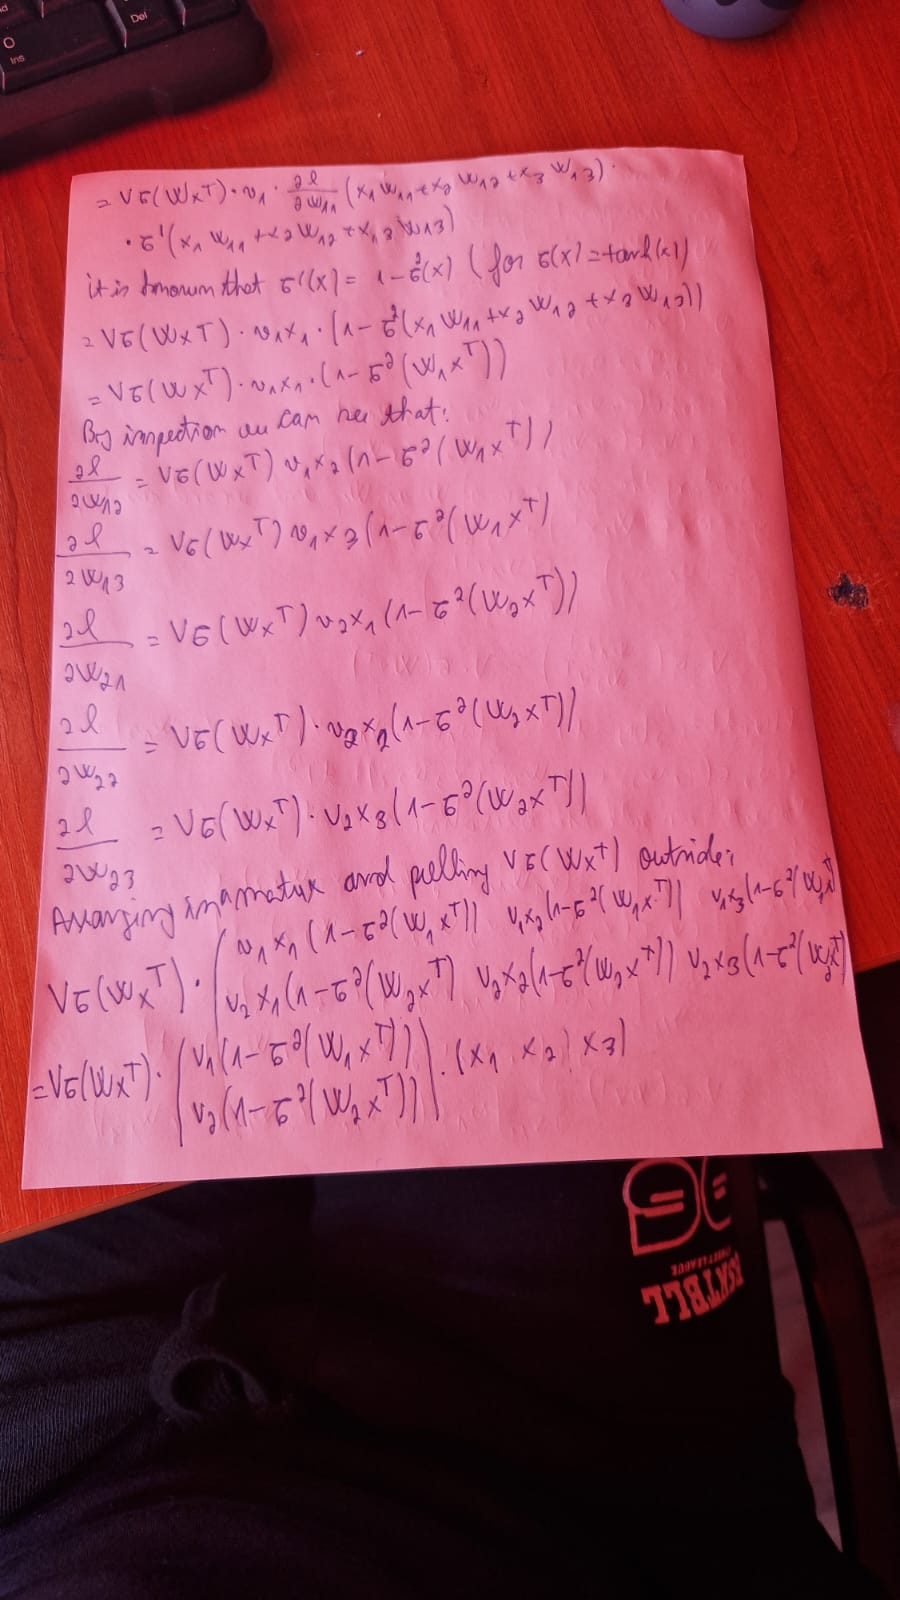 = Vσ(Wxᵀ)·v₁·∂l/∂w₁₁(x₁w₁₁+x₂w₁₂+x₃w₁₃)·
·σ'(x₁w₁₁+x₂w₁₂+x₃w₁₃)
it is known that σ'(x) = 1-σ²(x) (for σ(x)=tanh(x))
= Vσ(Wxᵀ)·v₁x₁·(1-σ²(x₁w₁₁+x₂w₁₂+x₃w₁₃))
= Vσ(Wxᵀ)·v₁x₁·(1-σ²(W₁xᵀ))
By inspection we can see that:
∂l/∂w₁₂ = Vσ(Wxᵀ) v₁x₂(1-σ²(W₁xᵀ))
∂l/∂w₁₃ = Vσ(Wxᵀ) v₁x₃(1-σ²(W₁xᵀ)
∂l/∂w₂₁ = Vσ(Wxᵀ) v₂x₁(1-σ²(W₂xᵀ))
∂l/∂w₂₂ = Vσ(Wxᵀ)·v₂x₂(1-σ²(W₂xᵀ))
∂l/∂w₂₃ = Vσ(Wxᵀ)·v₂x₃(1-σ²(W₂xᵀ))
Arranging in a matrix and pulling Vσ(Wxᵀ) outside:
v₁x₁(1-σ²(W₁xᵀ)) v₁x₂(1-σ²(W₁xᵀ)) v₁x₃(1-σ²(W₁xᵀ)
Vσ(Wxᵀ)·( v₂x₁(1-σ²(W₂xᵀ) v₂x₂(1-σ²(W₂xᵀ)) v₂x₃(1-σ²(W₂xᵀ)
= Vσ(Wxᵀ)·( v₁(1-σ²(W₁xᵀ)) )·(x₁ x₂ x₃)
v₂(1-σ²(W₂xᵀ))
Del
0
Ins